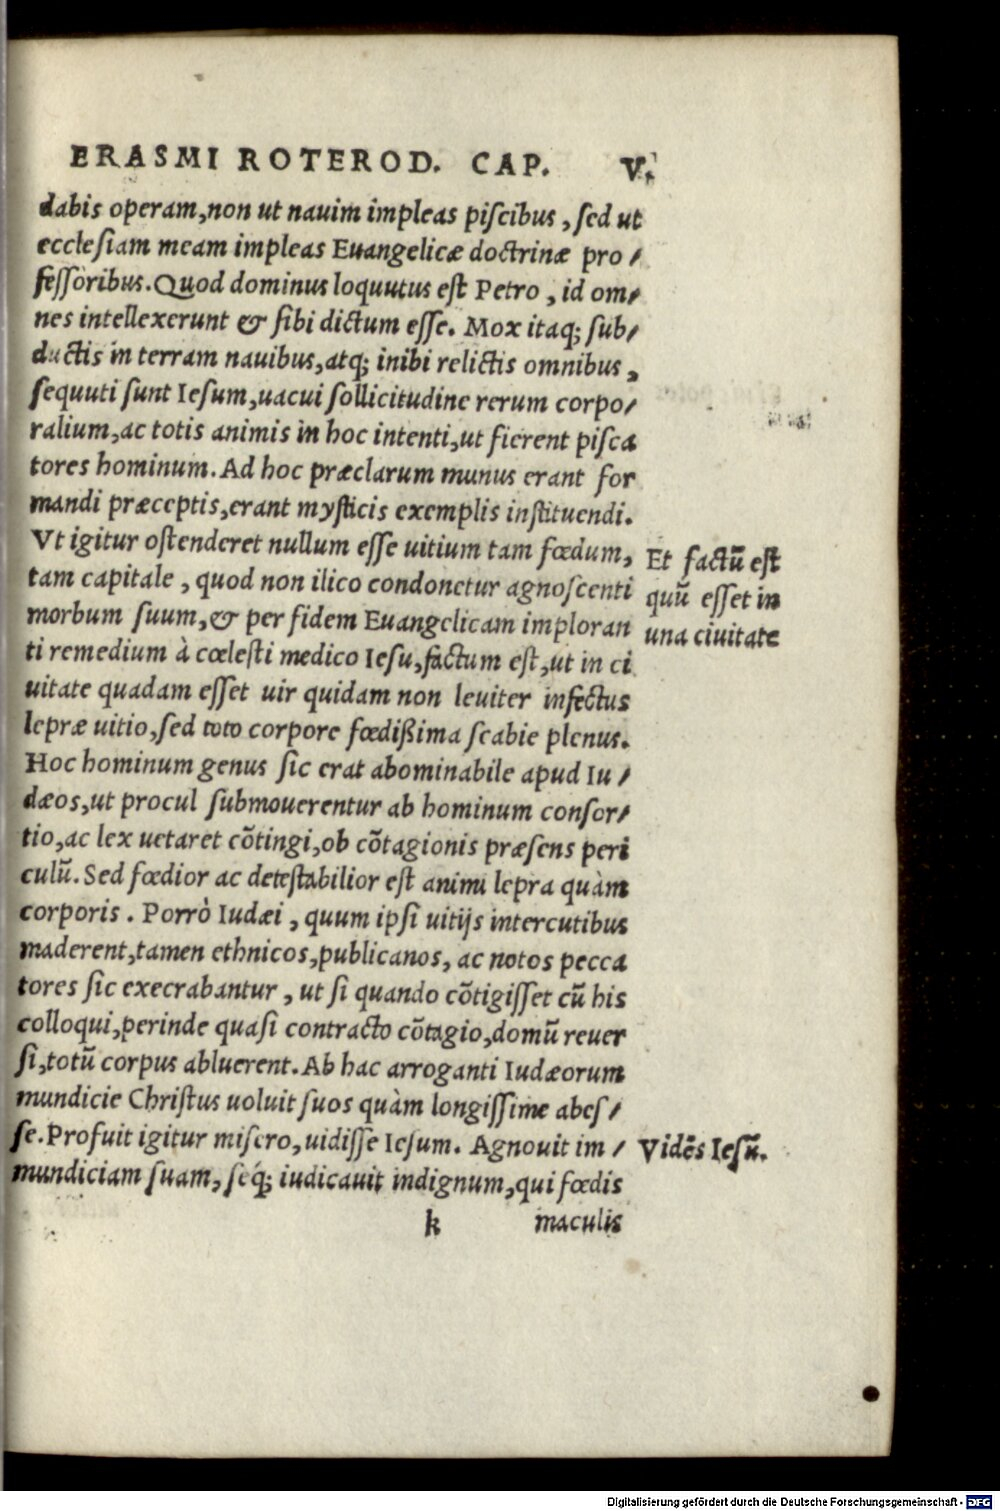 ERASMI ROTEROD. CAP. V.
dabis operam,non ut nauim impleas piſcibus, ſed ut
eccleſiam meam impleas Euangelicæ doctrinæ pro/
feſſoribus. Quod dominus loquutus eſt Petro, id om/
nes intellexerunt & ſibi dictum eſſe. Mox itaq; ſub/
ductis in terram nauibus,atq; inibi relictis omnibus,
ſequuti ſunt Ieſum,uacui ſollicitudine rerum corpo/
ralium,ac totis animis in hoc intenti,ut fierent piſca
tores hominum. Ad hoc præclarum munus erant for
mandi præceptis,erant myſticis exemplis inſtituendi.
Vt igitur oſtenderet nullum eſſe uitium tam fœdum,
tam capitale, quod non ilico condonetur agnoſcenti
morbum ſuum,& per fidem Euangelicam imploran
ti remedium à cœleſti medico Ieſu,factum eſt,ut in ci
uitate quadam eſſet uir quidam non leuiter infectus
lepræ uitio,ſed toto corpore fœdißima ſcabie plenus.
Hoc hominum genus ſic erat abominabile apud Iu/
dæos,ut procul ſubmouerentur ab hominum conſor/
tio,ac lex uetaret cõtingi,ob cõtagionis præſens peri
culũ. Sed fœdior ac deteſtabilior eſt animi lepra quàm
corporis. Porrò Iudæi, quum ipſi uitijs intercutibus
maderent,tamen ethnicos,publicanos, ac notos pecca
tores ſic execrabantur, ut ſi quando cõtigiſſet cũ his
colloqui,perinde quaſi contracto cõtagio,domũ reuer
ſi,totũ corpus abluerent. Ab hac arroganti Iudæorum
mundicie Chriſtus uoluit ſuos quàm longiſſime abeſ/
ſe. Profuit igitur miſero,uidiſſe Ieſum. Agnouit im/
mundiciam ſuam, ſeq́; iudicauit indignum,qui fœdis
k maculis
Et factũ eſt
quũ eſſet in
una ciuitate
Vidẽs Ieſũ.
Digitalisierung gefördert durch die Deutsche Forschungsgemeinschaft - DFG